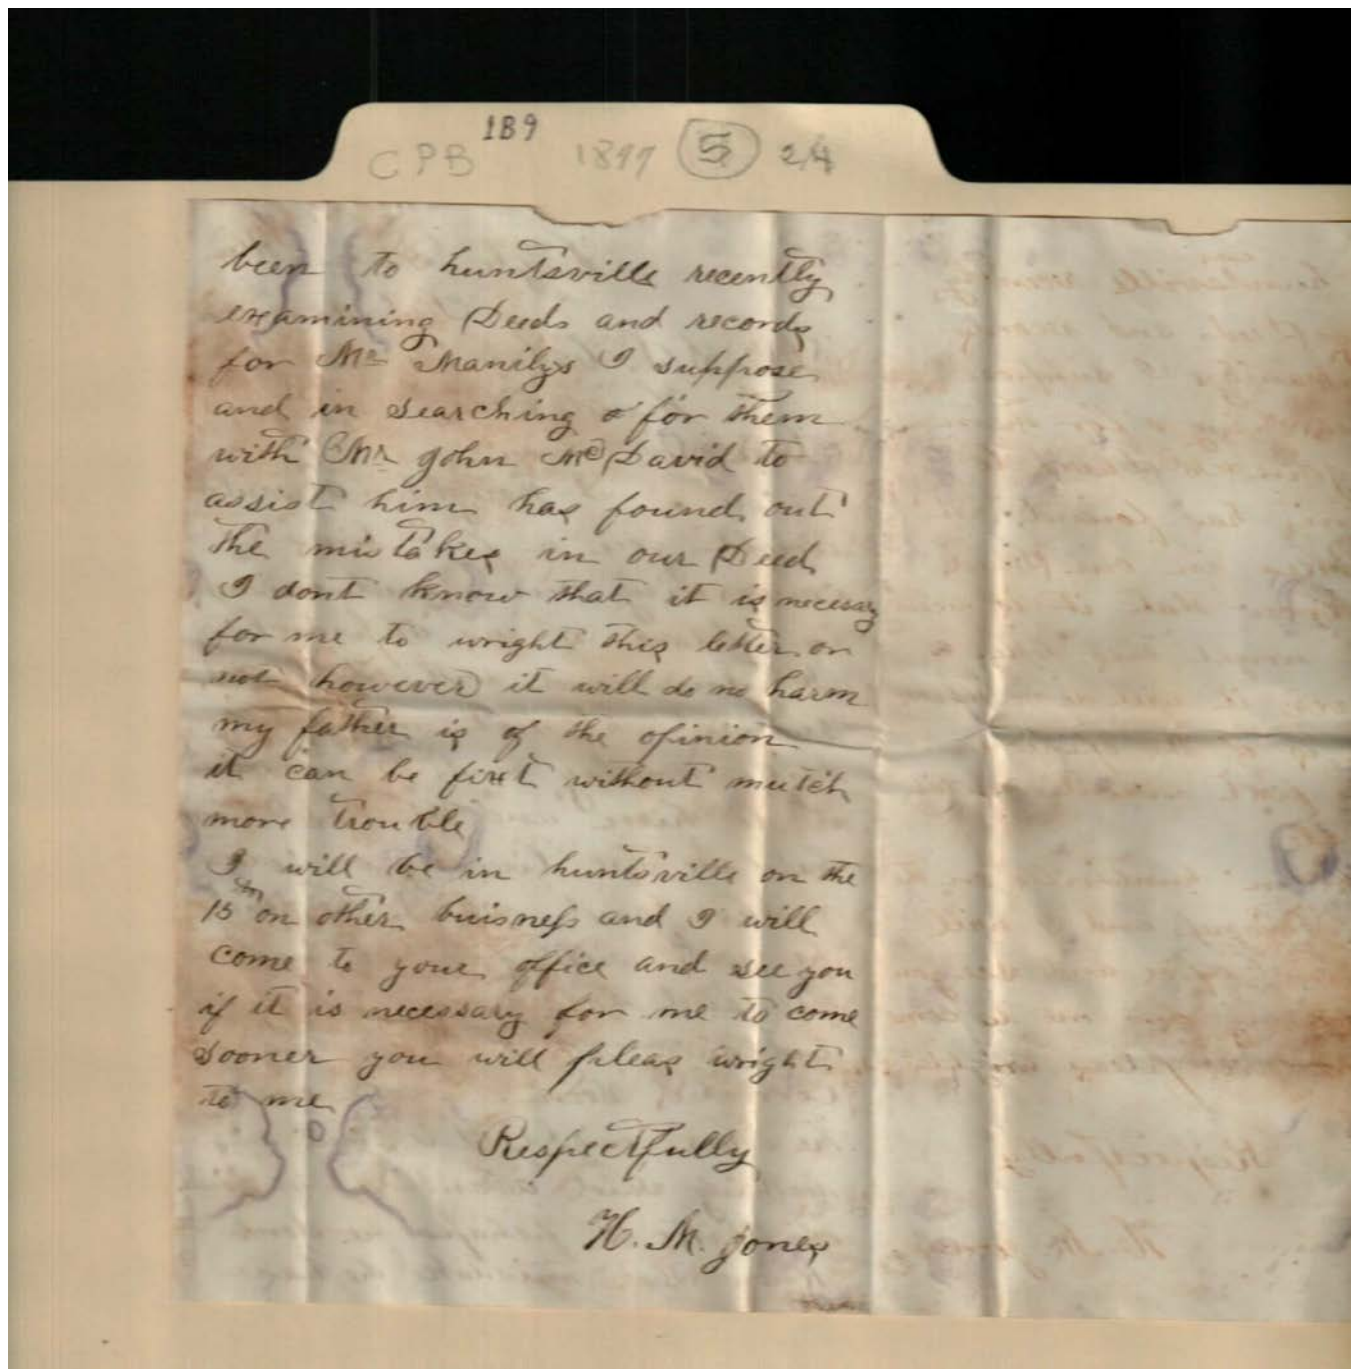 189
CPB 1897 5 2/4
been to huntsville recently
examining Deeds and records
for Mr Manilys I suppose
and in searching for them
with Mr John McDavid to
assist him has found out
the mistakes in our Deed
I dont know that it is necesary
for me to wright this letter or
not however it will do no harm
my father is of the opinion
it can be fixt without mutch
more trouble
I will be in huntsville on the
15th on other buisness and I will
come to your office and see you
if it is necessary for me to come
sooner you will pleas wright
to me
Respectfully
H. M. Jones